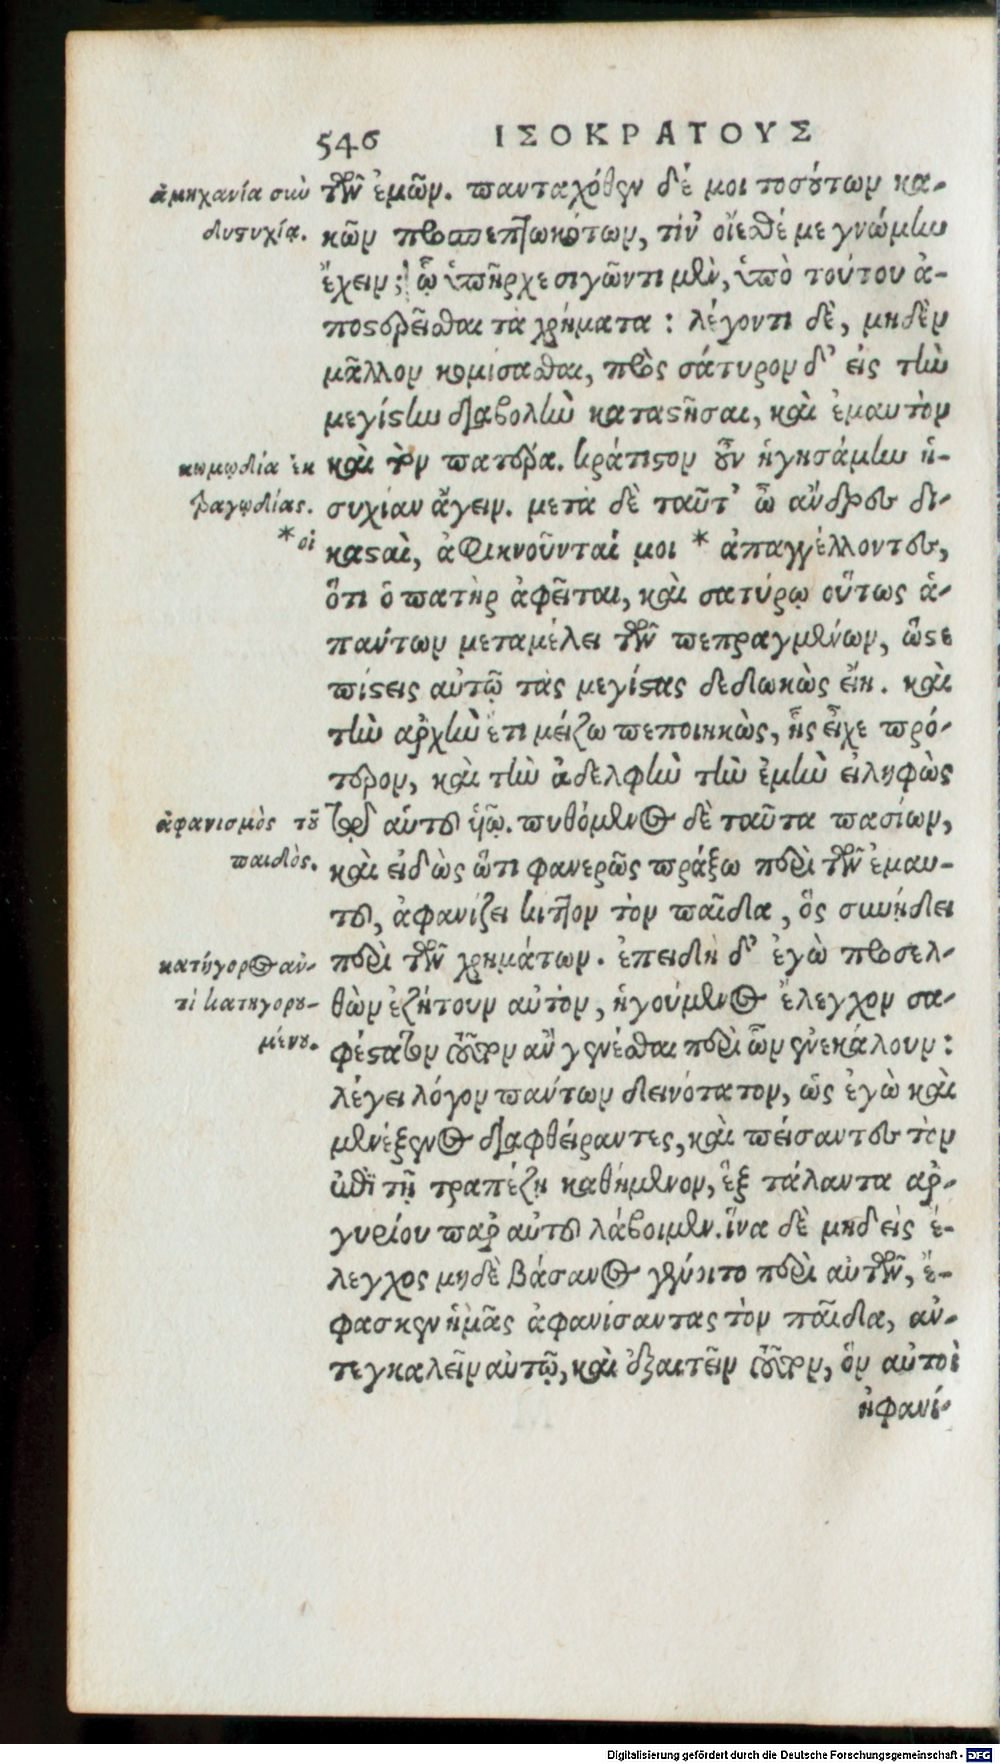 546 ΙΣΟΚΡΑΤΟΥΣ
ἀμηχανία σὺν
δυστυχίᾳ.
τῶν ἐμῶν. πανταχόθεν δέ μοι τοσούτων κα-
κῶν προσπεπτωκότων, τίν' οἴεσθέ με γνώμην
ἔχειν; ᾧ ὑπῆρχε σιγῶντι μὲν, ὑπὸ τούτου ἀ-
ποστερεῖσθαι τὰ χρήματα: λέγοντι δὲ, μηδὲν
μᾶλλον κομίσασθαι, πρὸς σάτυρον δ' εἰς τὴν
μεγίστην διαβολὴν καταστῆσαι, καὶ ἐμαυτὸν
κωμῳδία ἐκ
τραγῳδίας.
καὶ τὸν πατέρα. κράτιστον οὖν ἡγησάμην ἡ-
συχίαν ἄγειν. μετὰ δὲ ταῦτ' ὦ ἄνδρες δι-
* οἱ
κασταὶ, ἀφικνοῦνταί μοι * ἀπαγγέλλοντες,
ὅτι ὁ πατὴρ ἀφεῖται, καὶ σατύρῳ οὕτως ἁ-
πάντων μεταμέλει τῶν πεπραγμένων, ὥστε
πίστεις αὐτῷ τὰς μεγίστας δεδωκὼς εἴη. καὶ
τὴν ἀρχὴν ἔτι μείζω πεποιηκὼς, ἧς εἶχε πρό-
τερον, καὶ τὴν ἀδελφὴν τὴν ἐμὴν εἰληφὼς
ἀφανισμὸς τοῦ
παιδὸς.
τῷ αὑτοῦ ὑῷ. πυθόμενος δὲ ταῦτα πασίων,
καὶ εἰδὼς ὅτι φανερῶς πράξω περὶ τῶν ἐμαυ-
τοῦ, ἀφανίζει κίττον τὸν παῖδα, ὃς συνῄδει
κατήγορος ἀν-
τὶ κατηγορου-
μένου.
περὶ τῶν χρημάτων. ἐπειδὴ δ' ἐγὼ προσελ-
θὼν ἐζήτουν αὐτὸν, ἡγούμενος ἔλεγχον σα-
φέστατον τοῦτον ἂν γενέσθαι περὶ ὧν ἐνεκάλουν:
λέγει λόγον πάντων δεινότατον, ὡς ἐγὼ καὶ
μενέξενος διαφθείραντες, καὶ πείσαντες τὸν
ἐπὶ τῇ τραπέζῃ καθήμενον, ἓξ τάλαντα ἀρ-
γυρίου παρ αὐτοῦ λάβοιμεν. ἵνα δὲ μηδεὶς ἔ-
λεγχος μηδὲ βάσανος γένοιτο περὶ αὐτῶν, ἔ-
φασκεν ἡμᾶς ἀφανίσαντας τὸν παῖδα, ἀν-
τεγκαλεῖν αὐτῷ, καὶ ἐξαιτεῖν τοῦτον, ὃν αὐτοὶ
ἠφανί-
Digitalisierung gefördert durch die Deutsche Forschungsgemeinschaft - DFG